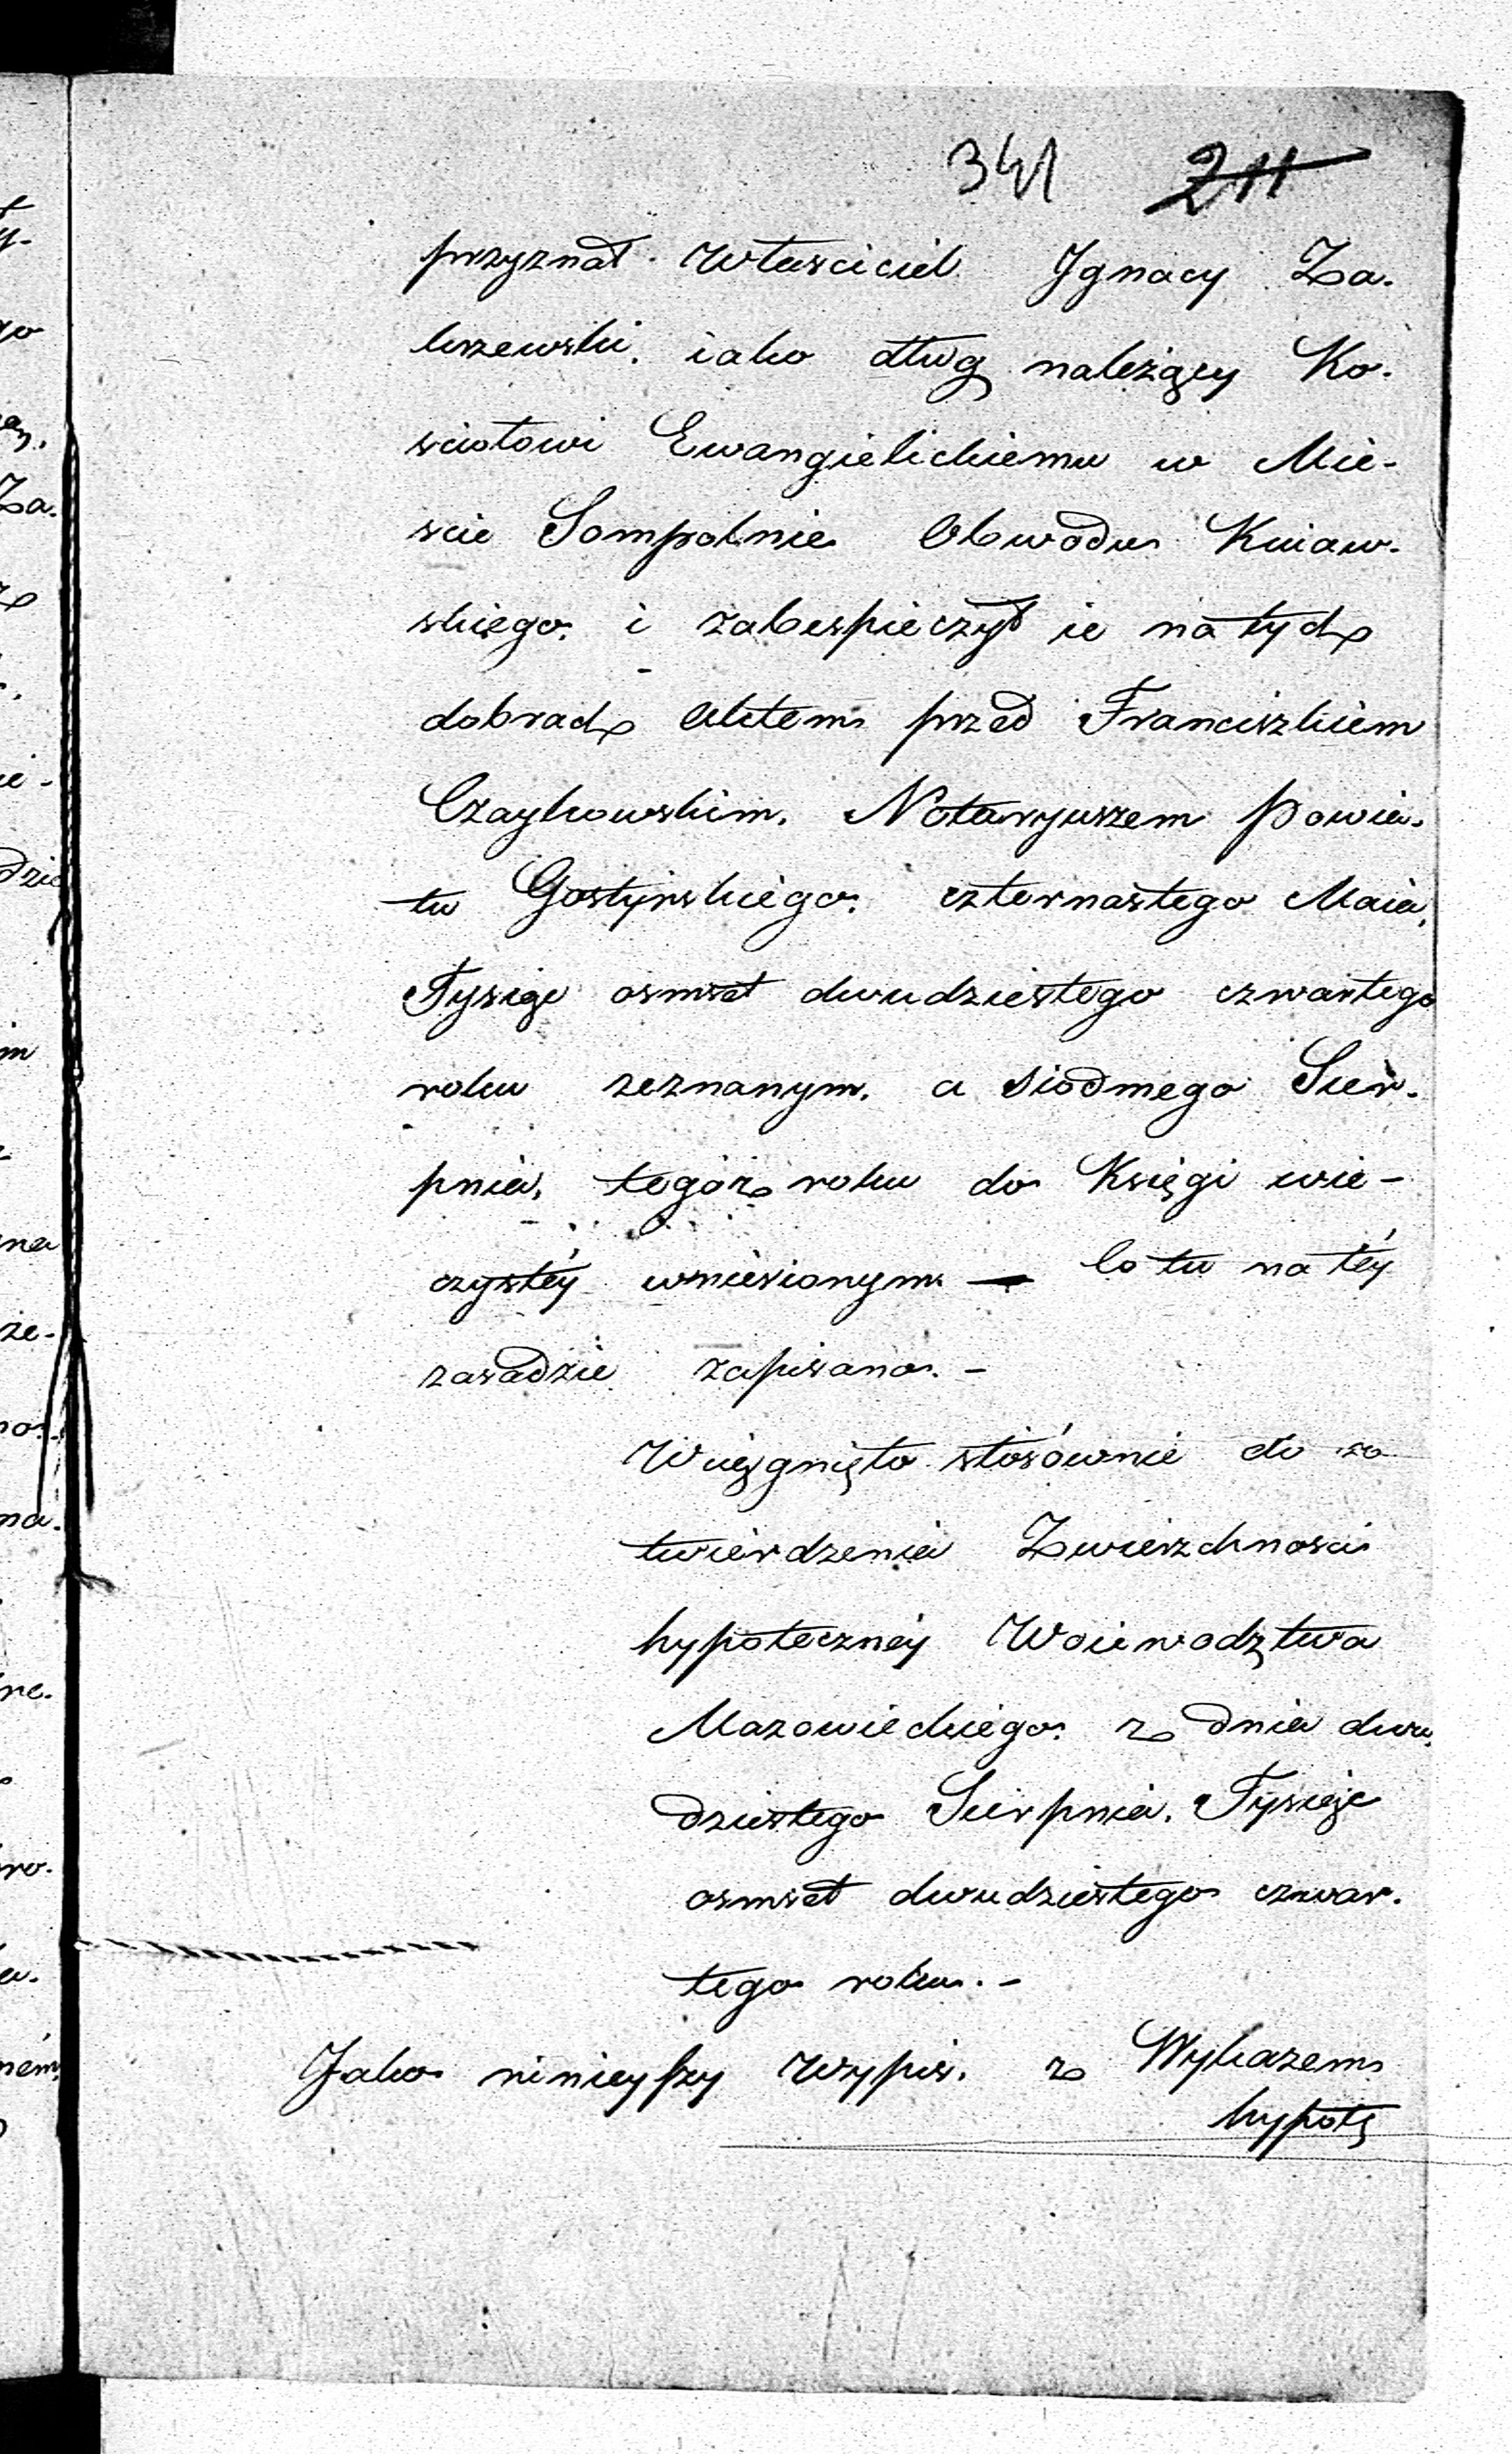 341 211
przyznał Właściciel Ignacy Za-
krzewski, iako dług należący Ko-
ściołowi Ewangielickiemu w Mie-
ście Sompolnie Obwodu Kuiaw-
skiego, i zabespieczył ie na tych
dobrach Aktem przed Franciszkiem
Czaykowskim, Notaryuszem Powia-
tu Gostyńskiego, czternastego Maia,
Tysiąc osmset dwudziestego czwartego
roku zeznanym, a siodmego Sier-
pnia, tegóż roku do Księgi wie-
czystéy wniesionym — Co tu na téy
zasadzie zapisano. -
Wciągnięto stosównie do za
twierdzenia Zwierzchności
hypotecznéy Woiewodztwa
Mazowieckiego z dnia dwu-
dziestego Sierpnia, Tysiąc
osmset dwudziestego czwar-
tego roku. -
Jako ninieyszy Wypis, z Wykazem
hypotę